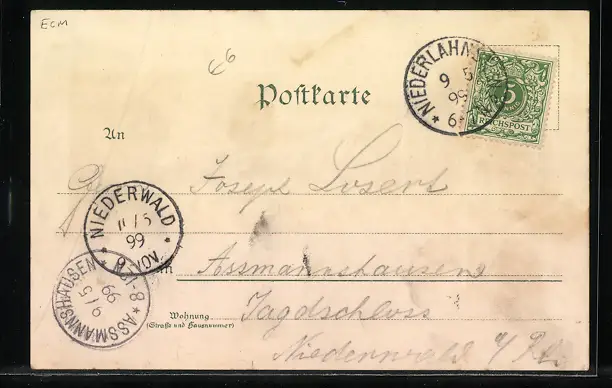 ECM
66
Postkarte
NIEDERLAHN
9 5
99
6
5
REICHSPOST
An
Joseph Losert
NIEDERWALD
11/5
99
9-10V.
in
Assmannshausen
ASSMANNSHAUSEN
9/5
99
Wohnung
(Straße und Hausnummer)
Jagdschloss
Niederwald a/Rh.